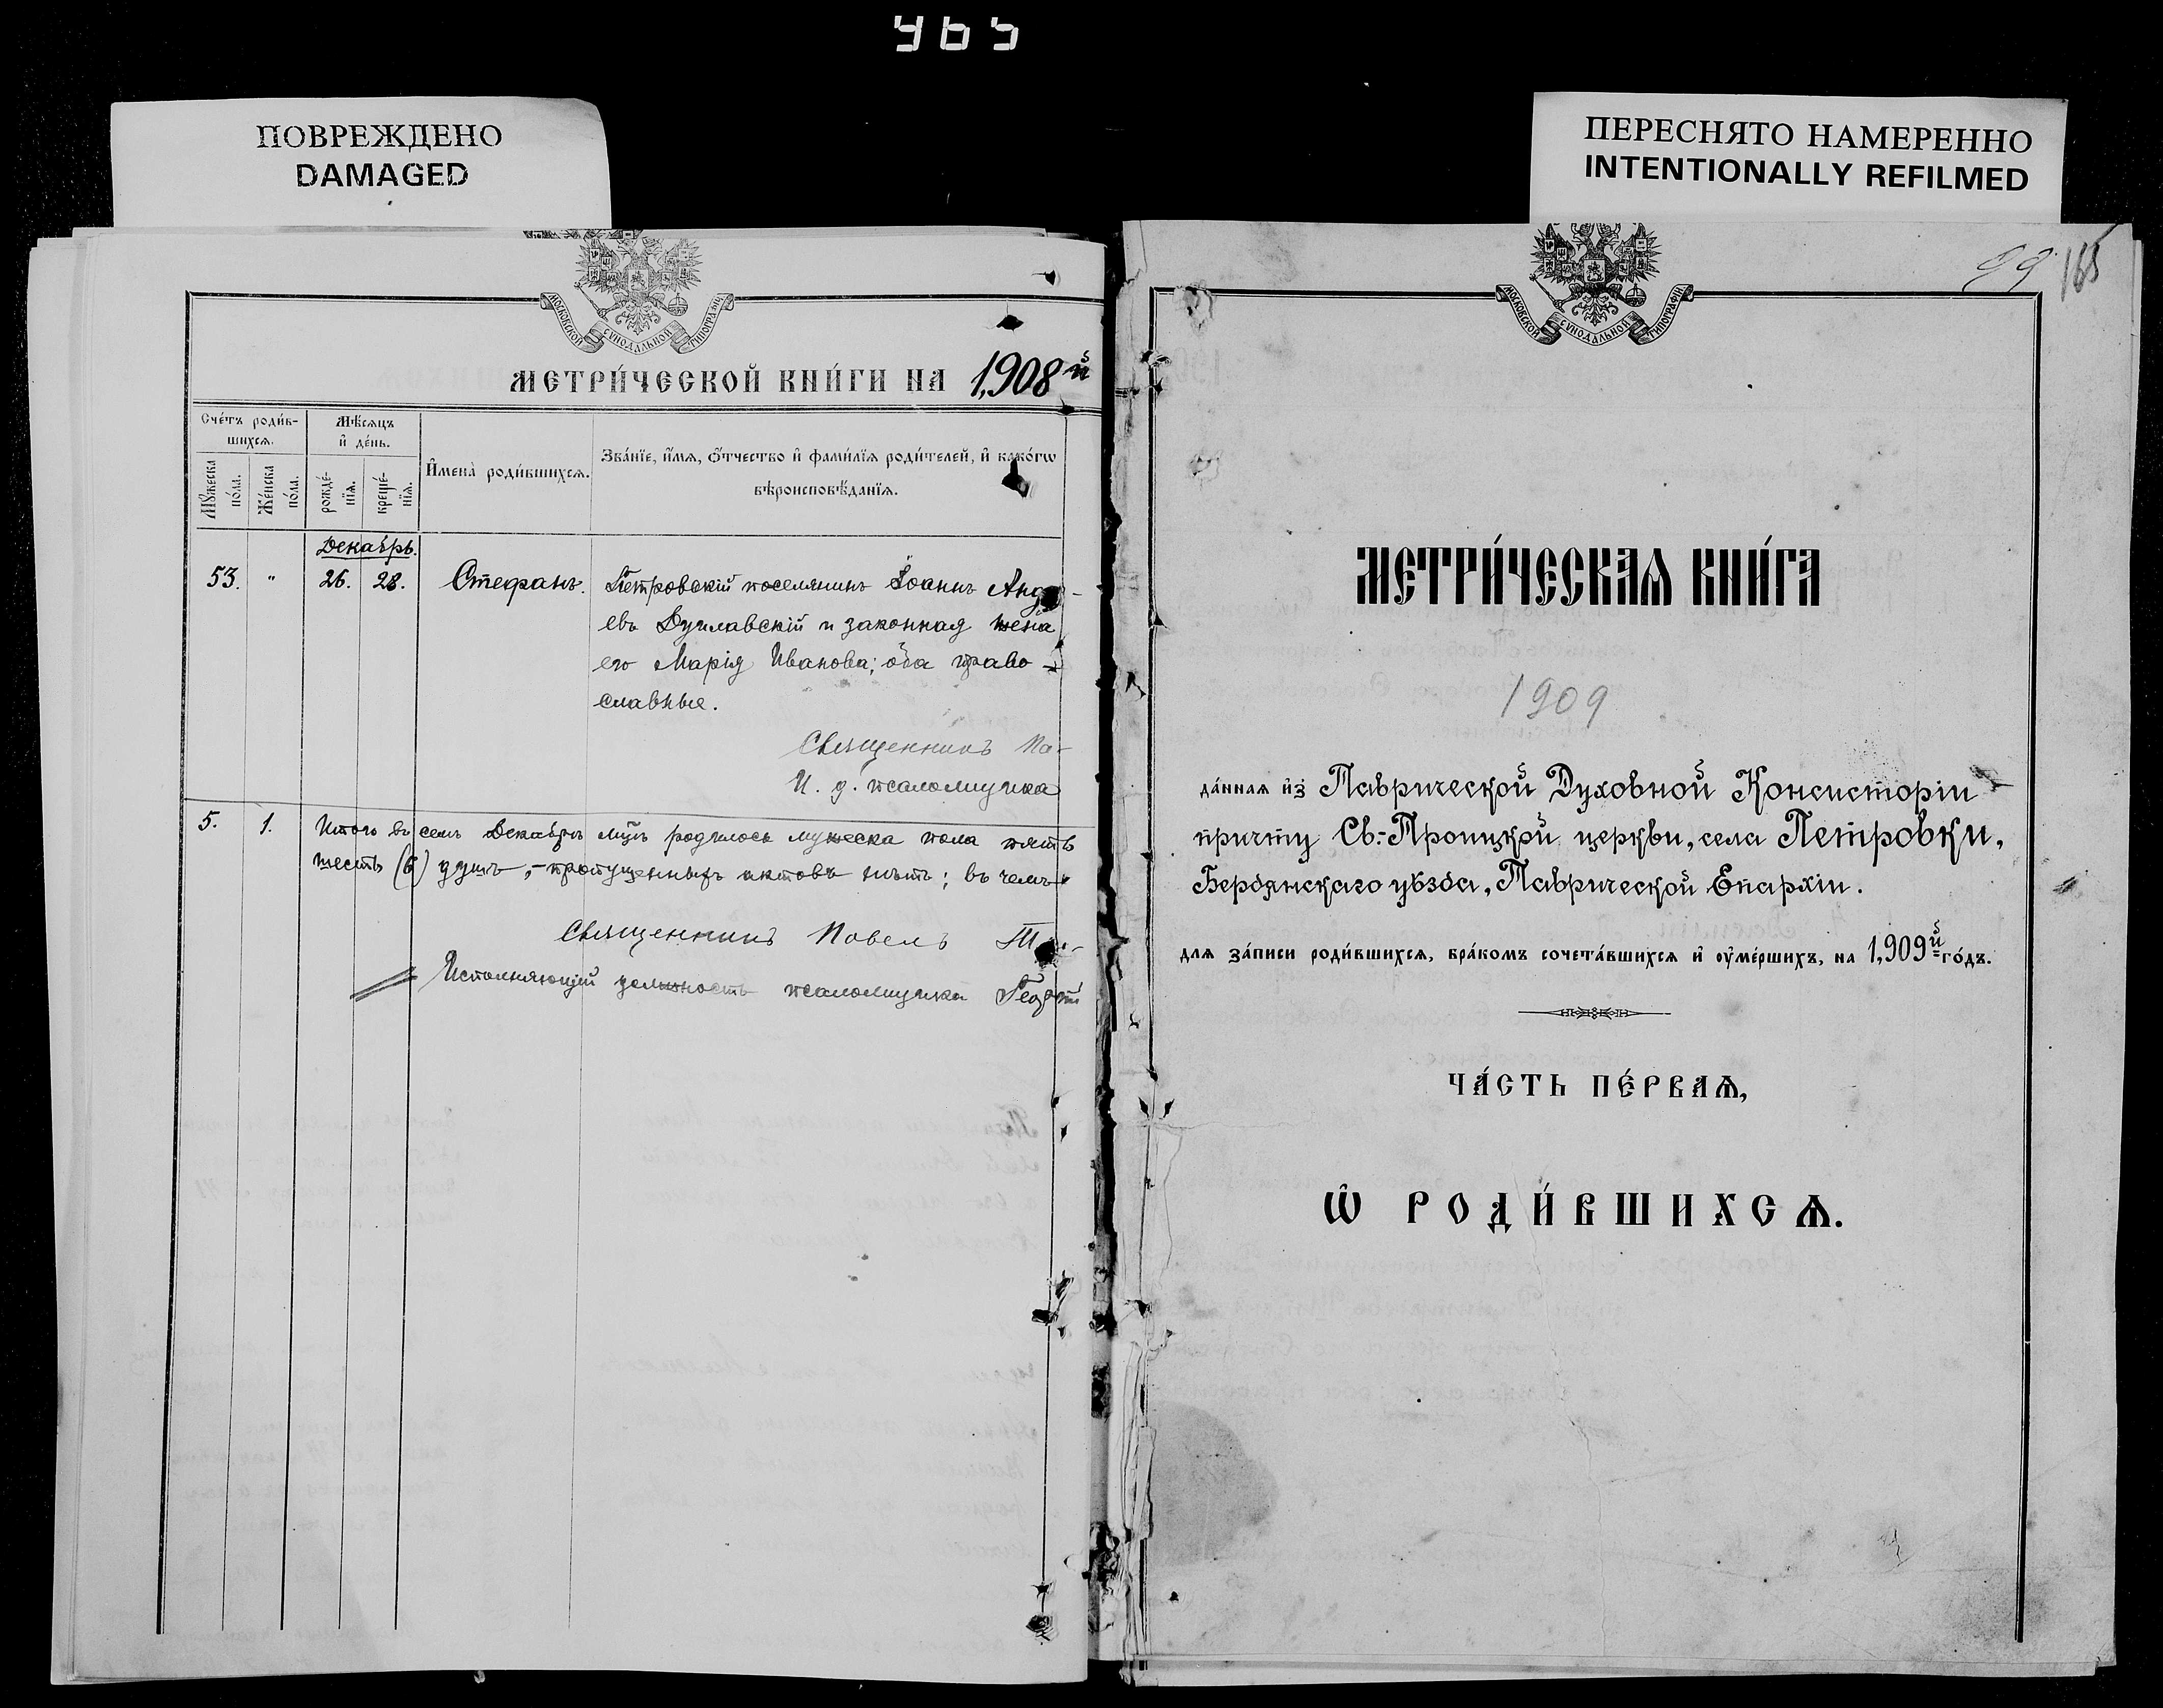 965
ПОВРЕЖДЕНО
DAMAGED
ПЕРЕСНЯТО НАМЕРЕННО
INTENTIONALLY REFILMED
МОСКОВСКОЙ СѴНОДАЛЬНОЙ ТИПОГРАФІИ
МЕТРИ́ЧЕСКОЙ КНИ́ГИ НА 1,908й
Сче́тъ роди́в-
шихсѧ.
Мѣ́сѧцъ
и҆ де́нь.
Мꙋ́жеска
по́ла.
Же́нска
по́ла.
рожде́-
нїѧ.
креще́-
нїѧ.
И҆мена̀ роди́вшихсѧ.
Зва́нїе, и҆́мѧ, ѻ҆́тчество и҆ фами́лїѧ роди́телей, и҆ како́гѡ
вѣроисповѣ́данїѧ.
Декабрь.
53. " 26. 28. Стефанъ. Петровскій поселянинъ Іоаннъ
евъ Дуплавскій и законная жена
его Марія Иванова; оба право-
славные.
Священникъ Па-
И. д. псаломщика
5. 1. Итого въ семъ Декабрѣ мѣцѣ родилось мужеска пола пять
шесть (6) душъ, - пропущенныхъ актовъ нѣтъ; въ чемъ
Священникъ Павелъ
Исполняющій должность псаломщика Георгій
99 165
МОСКОВСКОЙ СѴНОДАЛЬНОЙ ТИПОГРАФІИ
МЕТРИ́ЧЕСКАѦ КНИ́ГА
1909
да́ннаѧ и҆з̾ Таврической Духовной Консисторіи
причту Св.-Троицкой церкви, села Петровки,
Бердянскаго уѣзда, Таврической Епархіи.
длѧ за́писи роди́вшихсѧ, бра́комъ сочета́вшихсѧ и҆ ᲂу҆ме́ршихъ, на 1,909й го́дъ.
ЧА́СТЬ ПЕ́РВАѦ,
Ѡ҆ РОДИ́ВШИХСѦ.